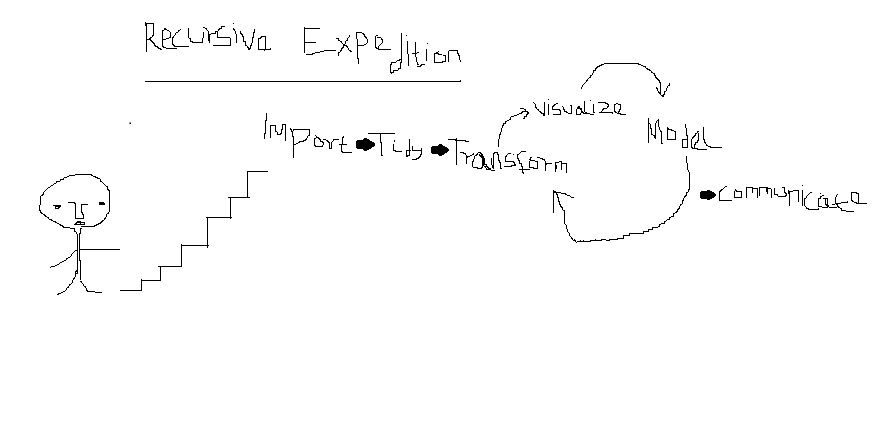 Recursiva Expedition
Import Tidy Transform
visualize
Model
communicate